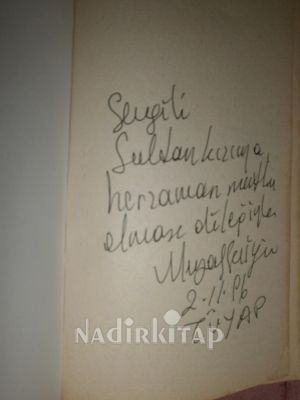 Sevgili
Sultan kızıma
her zaman mutlu
olması dileğiyle
Muzaffer İzgü
2.11.96
TÜYAP
NADİRKİTAP